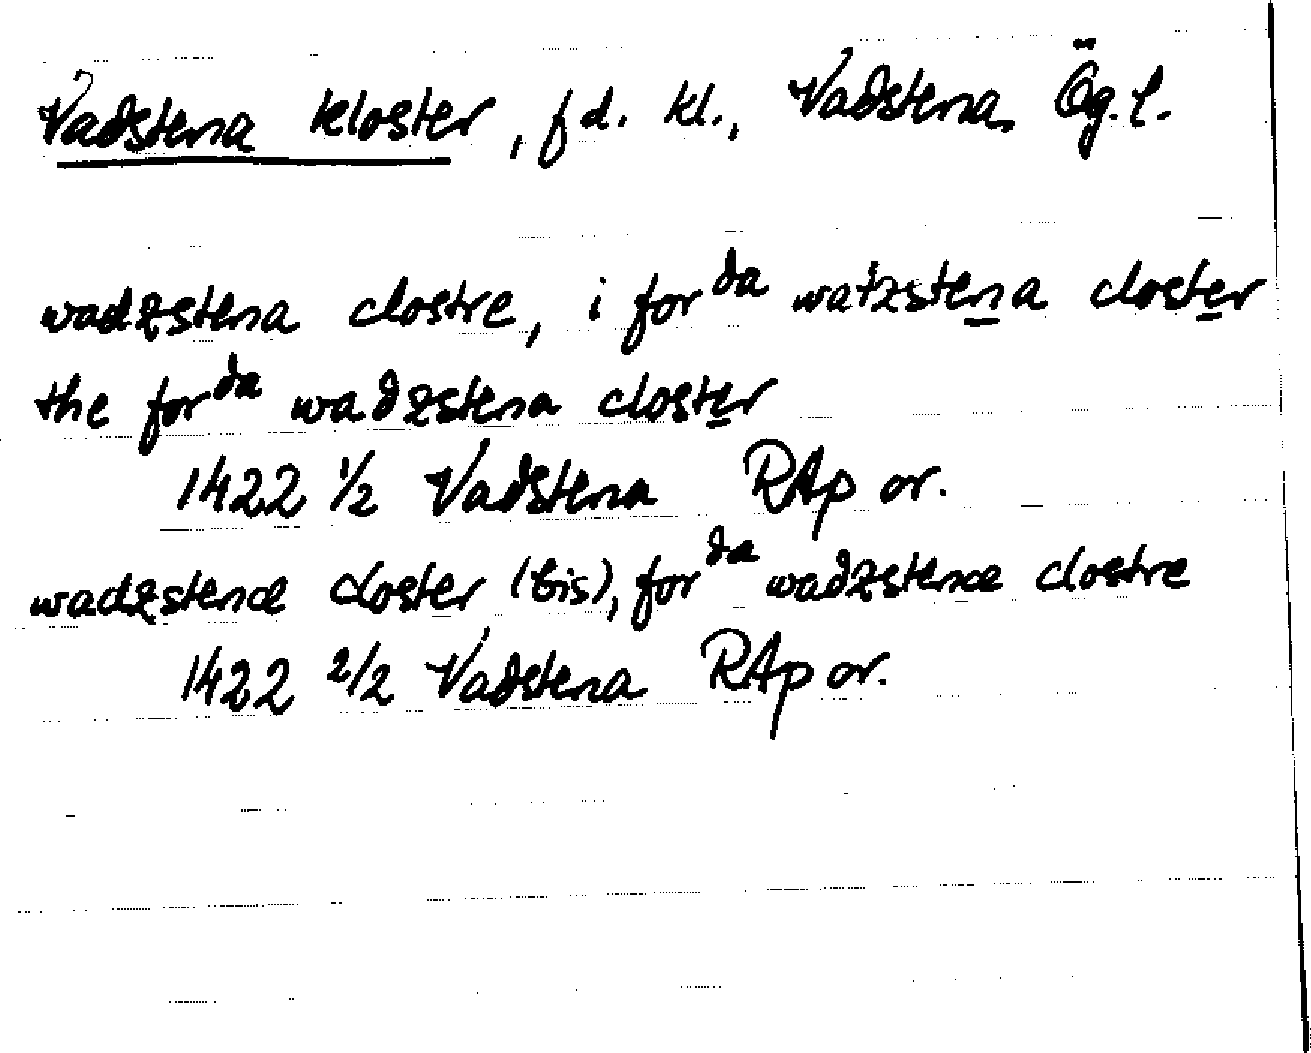 Vadstena kloster, f d. kl., Vadstena, Ög. l.
wadzstena clostre, i for da watzstena closter
the for da wadzstena closter
1422 1/2 Vadstena RAp or.
wadzstenæ closter (bis), for da wadzstenæ clostre
1422 2/2 Vadstena RAp or.